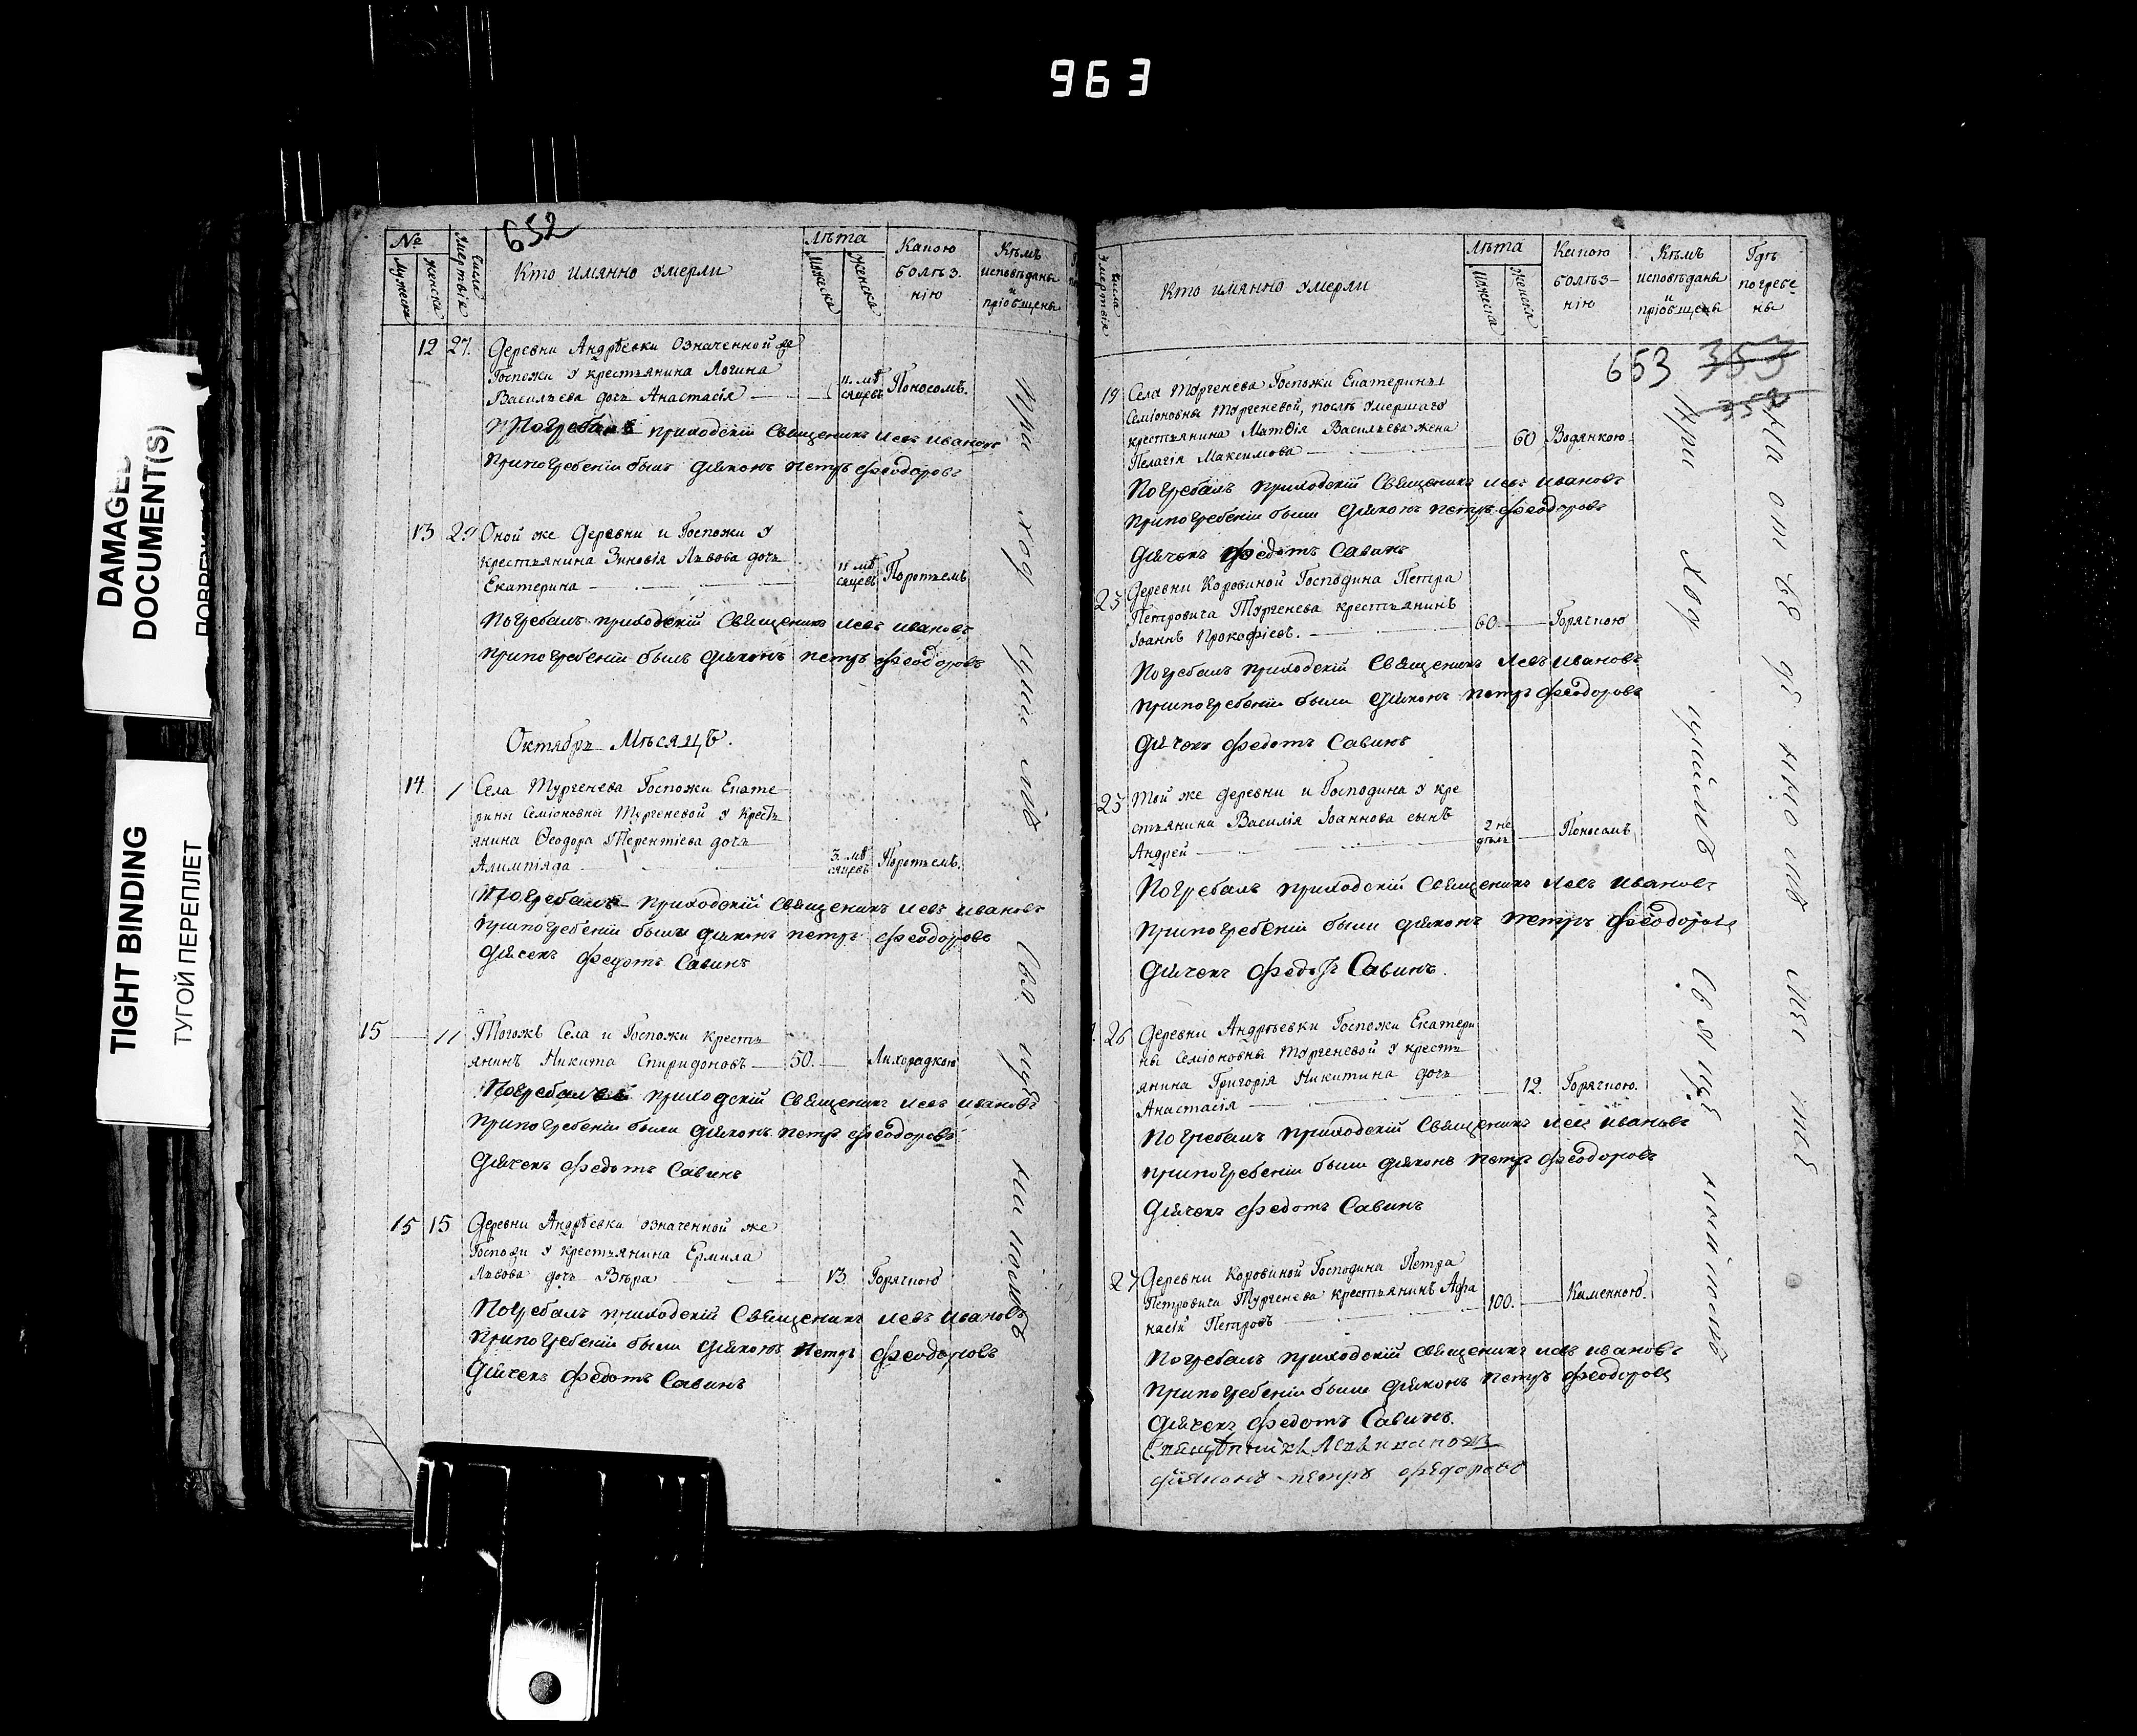 963
DAMAGED
DOCUMENT(S)
TIGHT BINDING
ТУГОЙ ПЕРЕПЛЕТ
652
№
Мужеска
женска
Числа Умертвія
Кто имянно Умерли
Лѣта
Мужеска
Женска
Какою
болѣз
нію
Кѣмъ
исповѣданы
и
пріобщены
12 27. Деревни Андрѣевки Означенной же
Госпожи у крестьянина Логина
Васильева дочь Анастасія — 11. мѣсяцевъ Поносомъ.
Погребалъ приходскій Священикъ Левъ Ивановъ
При погребеніи былъ діяконъ Петръ Феодоровъ
13 29 Оной же Деревни и Госпожи у
крестьянина Зиновія Львова дочь
Екатерина — 11 мѣсяцевъ Коротьемъ
Погребалъ приходскій Священикъ Левъ Ивановъ
При погребеніи былъ діяконъ Петръ Феодоровъ
Октябрь Мѣсяцъ.
14. 1 Села Тургенева Госпожи Екате
рины Семіоновны Тургеневой у кресть
янина Ѳеодора Терентіева дочь
Алимпіяда 3. мѣсяцевъ Коротьемъ.
Погребалъ приходскій Священикъ Левъ Ивановъ
При погребеніи были діяконъ Петръ Феодоровъ
Діячекъ Федотъ Савинъ
15 — 11 Тогожъ Села и Госпожи кресть
янинъ Никита Спиридоновъ — 50. — Лихорадкою
Погребалъ приходскій Священикъ Левъ Ивановъ
При погребеніи были діяконъ Петръ Феодоровъ
Діячекъ Федотъ Савинъ
15 15 Деревни Андрѣевки означенной же
Госпожи у крестьянина Ермила
Львова дочь Вѣра — 13 Горячкою
Погребалъ приходскій Священикъ Левъ Ивановъ
При погребеніи были діяконъ Петръ Феодоровъ
Діячекъ Федотъ Савинъ
Числа Умертвія
Кто имянно Умерли
Лѣта
Мужеска
Женска
Какою
болѣз-
нію
Кѣмъ
исповѣданы
и
пріобщены
Гдѣ
погребе
ны
653 353
352
19 Села Тургенева Госпожи Екатерины
Семіоновны Тургеневой, послѣ Умершаго
крестьянина Матѳія Васильева жена
Пелагія Максимова — 60 Водянкою
Погребалъ приходскій Священикъ Левъ Ивановъ
При погребеніи были діяконъ Петръ Феодоровъ
Діячекъ Федотъ Савинъ
23 Деревни Коровиной Господина Петра
Петровича Тургенева крестьянинъ
Іоаннъ Прокофіевъ. — 60. — Горячкою
Погребалъ приходскій Священикъ Левъ Ивановъ
При погребеніи были діяконъ Петръ Феодоровъ
Діячекъ Федотъ Савинъ
25 Той же деревни и Господина у кре
стьянина Василія Іоаннова сынъ
Андрей — 2 недѣль — Поносомъ
Погребалъ приходскій Священикъ Левъ Ивановъ
При погребеніи были діяконъ Петръ Феодоровъ
Діячекъ Федотъ Савинъ.
26 Деревни Андрѣевки Госпожи Екатери
ны Семіоновны Тургеневой у кресть
янина Григорія Никитина дочь
Анастасія — 12. Горячкою.
Погребалъ приходскій Священикъ Левъ Ивановъ
При погребеніи были діяконъ Петръ Феодоровъ
Діячекъ Федотъ Савинъ
27 Деревни Коровиной Господина Петра
Петровича Тургенева крестьянинъ Афа
насій Петровъ — 100. — Каменною.
Погребалъ приходскій священикъ Левъ Ивановъ
При погребеніи были діяконъ Петръ Феодоровъ
Діячекъ Федотъ Савинъ.
Священникъ Левъ Ивановъ
Діяконъ Петръ Федоровъ
При ход
Свя
При ход
Священ